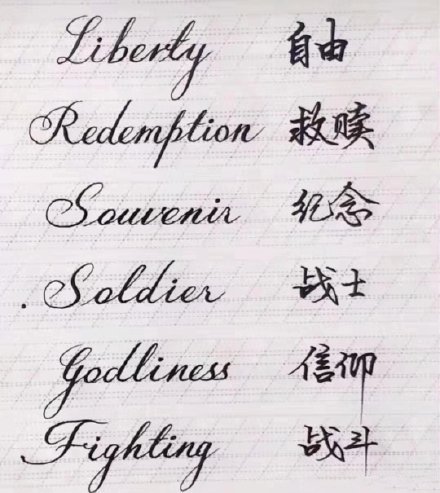 Liberty 自由
Redemption 救赎
Souvenir 纪念
Soldier 战士
Godliness 信仰
Fighting 战斗